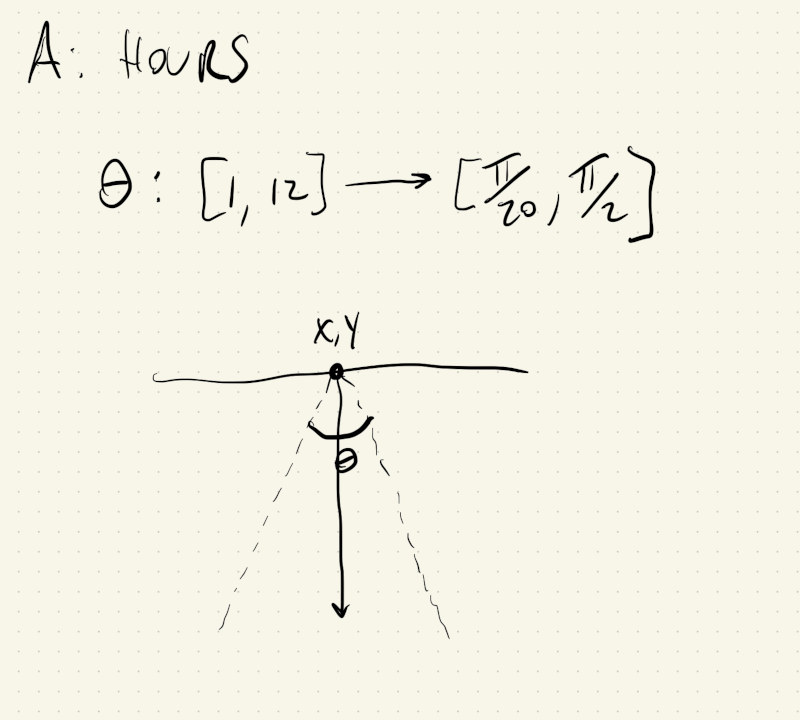 A: HOURS
θ: [1, 12] → [π/20, π/2]
X,Y
θ